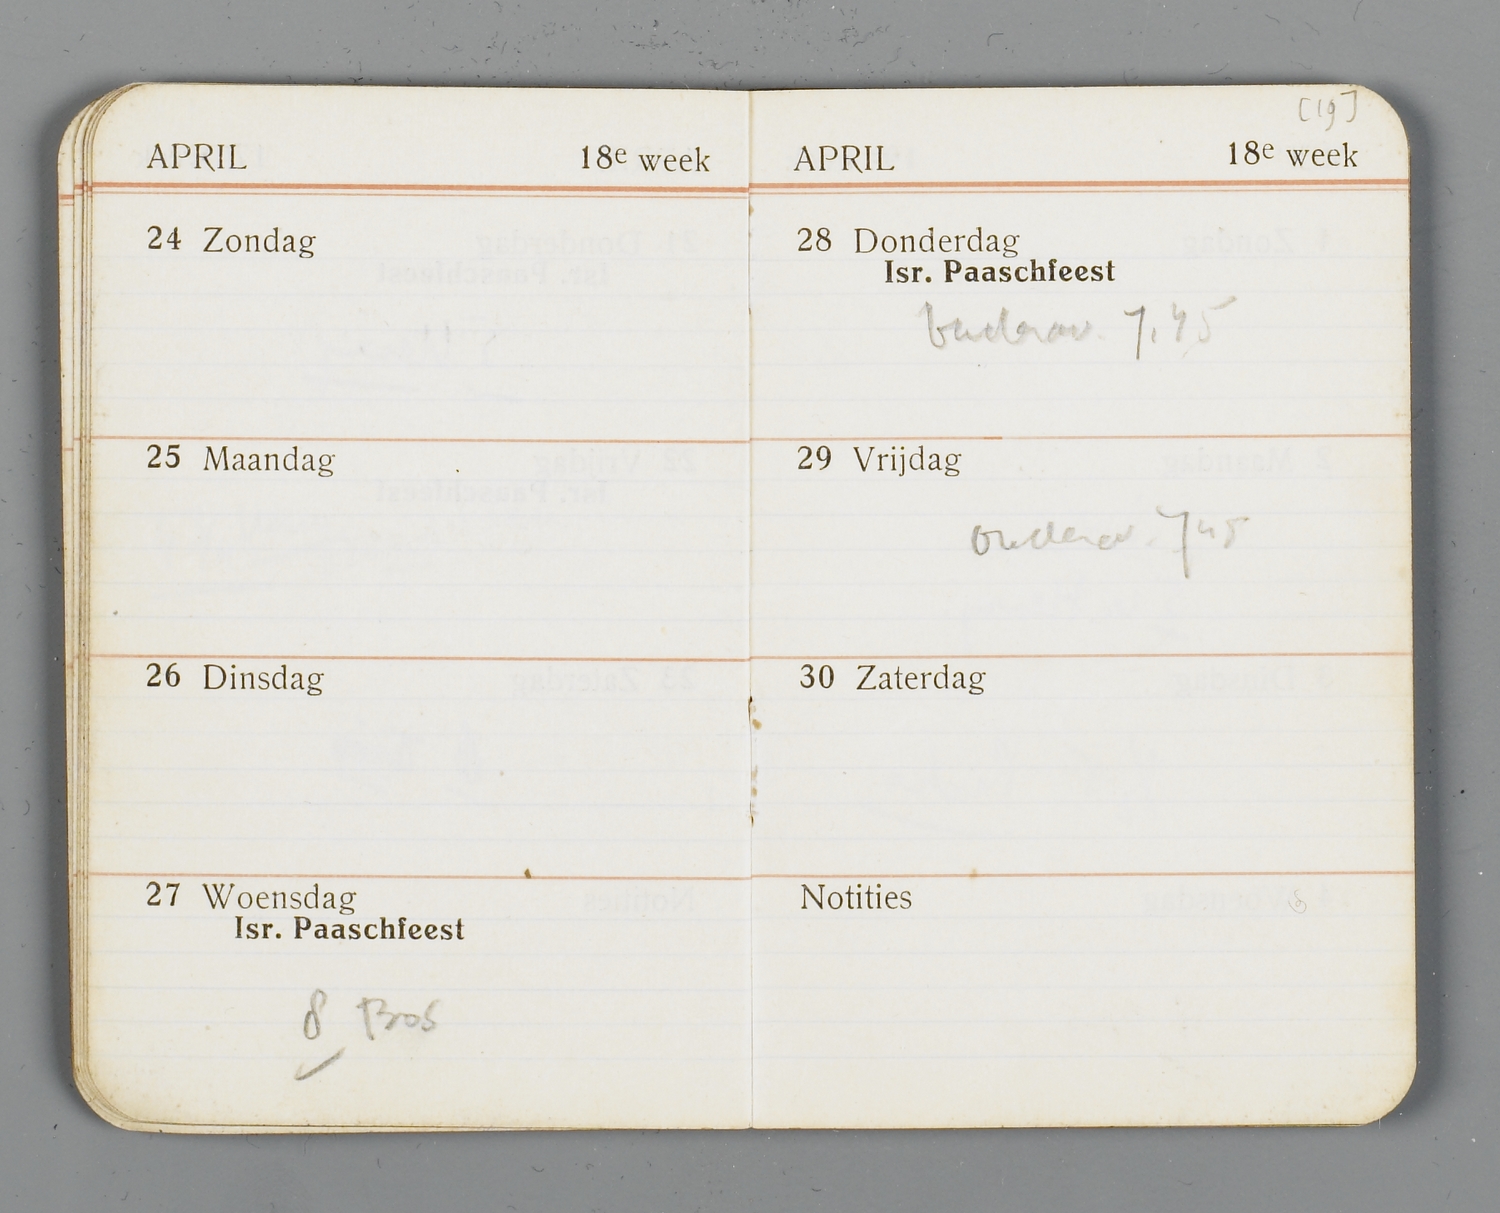 APRIL 18e week
24 Zondag
25 Maandag
26 Dinsdag
27 Woensdag
Isr. Paaschfeest
8 Bos
[19]
APRIL 18e week
28 Donderdag
Isr. Paaschfeest
ouderav. 7.45
29 Vrijdag
ouderav. 745
30 Zaterdag
Notities